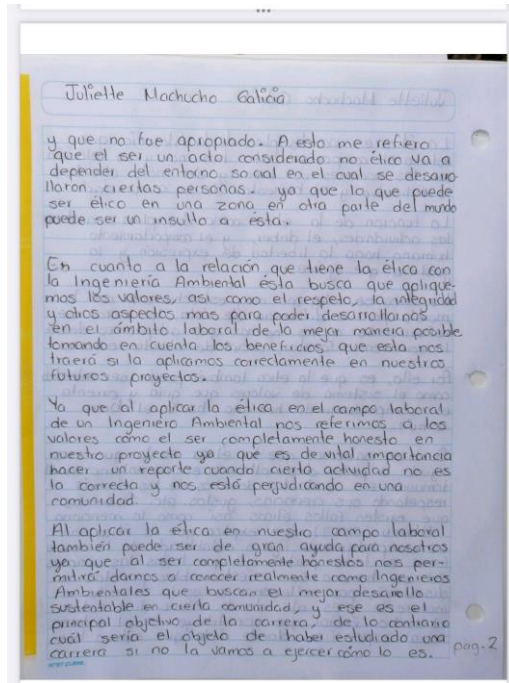 Juliette Machucho Galicia
y que no fue apropiado. A esto me refiero
que el ser un acto considerado no ético va a
depender del entorno social en el cual se desarro
llaron ciertas personas. ya que lo que puede
ser ético en una zona en otra parte del mundo
puede ser un insulto a ésta.
En cuanto a la relación que tiene la ética con
la Ingeniería Ambiental ésta busca que aplique-
mos los valores, asi como el respeto, la integridad
y otros aspectos mas para poder desarrollarnos
en el ámbito laboral de la mejor manera posible
tomando en cuenta los beneficios que esta nos
traerá si la aplicamos correctamente en nuestros
futuros proyectos.
Ya que al aplicar la ética en el campo laboral
de un Ingeniero Ambiental nos referimos a los
valores como el ser completamente honesto en
nuestro proyecto ya que es de vital importancia
hacer un reporte cuando cierta actividad no es
la correcta y nos está perjudicando en una
comunidad.
Al aplicar la ética en nuestro campo laboral
también puede ser de gran ayuda para nosotros
ya que al ser completamente honestos nos per-
mitirá darnos a conocer realmente como Ingenieros
Ambientales que buscan el mejor desarollo
sustentable en cierta comunidad, y ese es el
principal objetivo de la carrera, de lo contrario
cuál sería el objeto de haber estudiado una
carrera si no la vamos a ejercer cómo lo es.
pag. 2